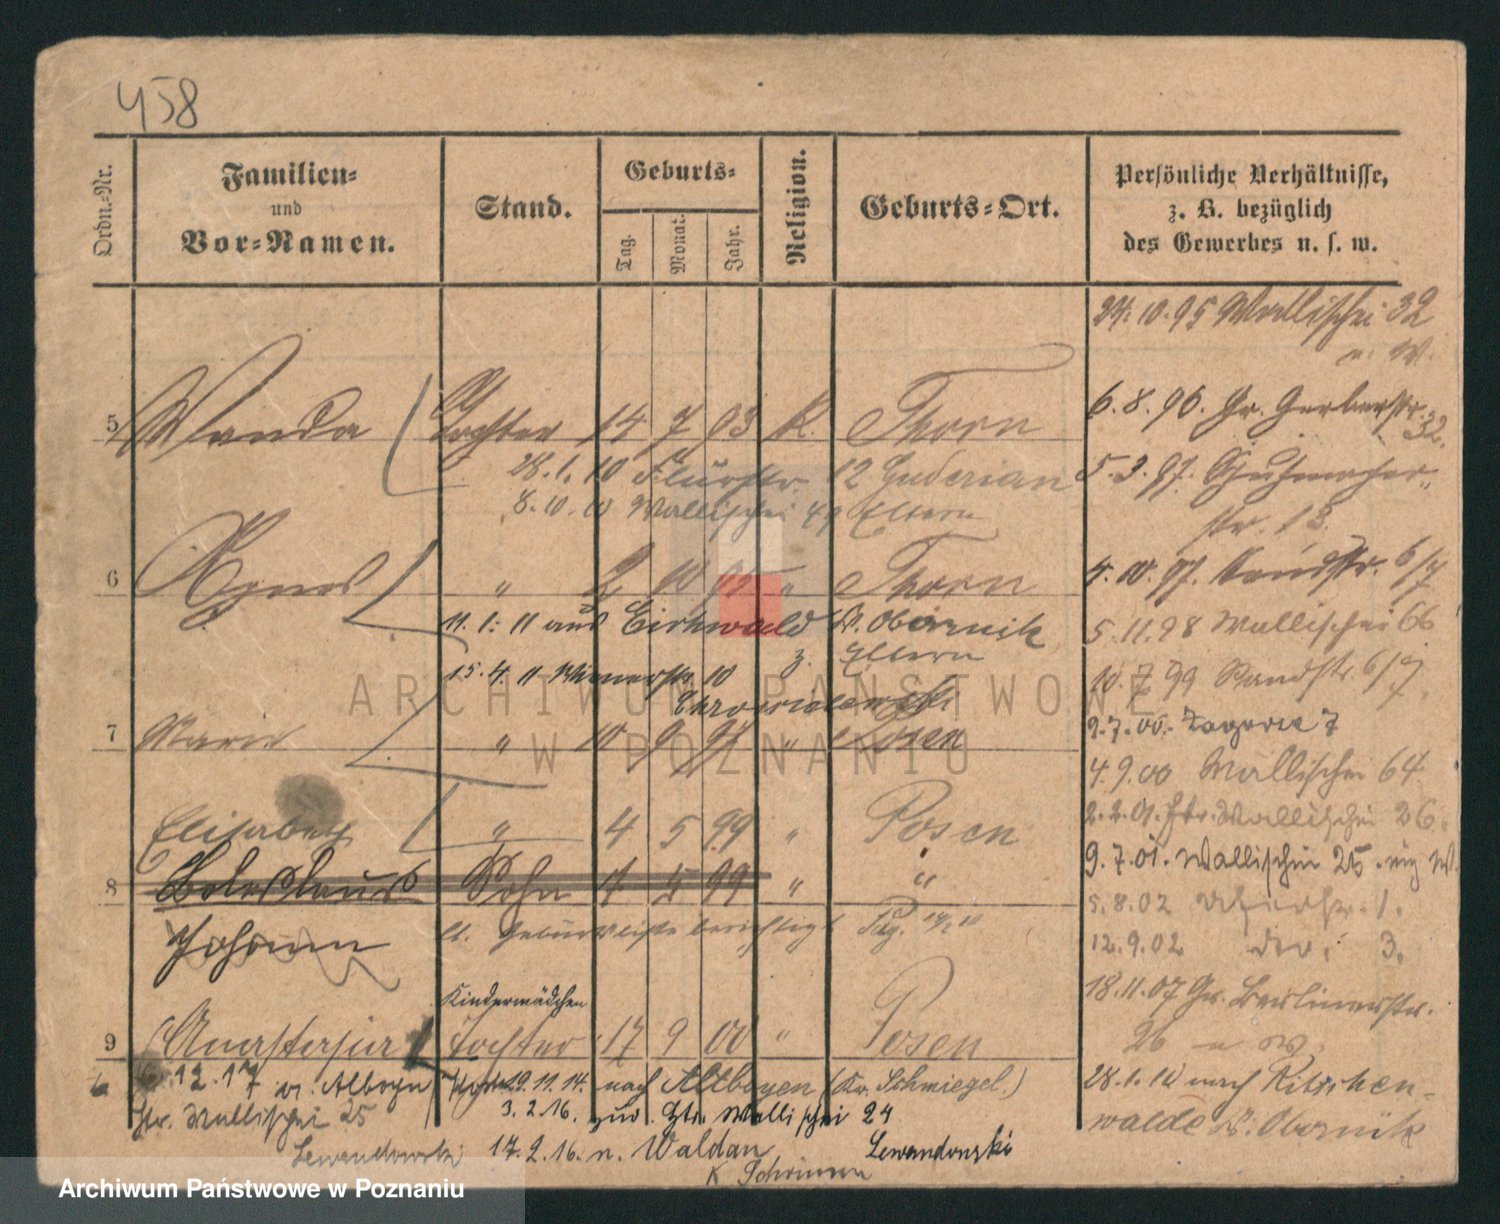 458
Ordn.-Nr.
Familien-
und
Vor-Namen.
Stand.
Geburts-
Tag.
Monat.
Jahr.
Religion.
Geburts-Ort.
Persönliche Verhältnisse,
z. B. bezüglich
des Gewerbes u. s. w.
24.10.95 Wallischei 32
n. W.
5 Wanda Tochter 14 7 93 k. Thorn
6.8.96. Gr. Gerberstr. 32.
28.1.10 Flurstr. 12 Guderian
5.3.97. Schuhmacher-
8.10.10 Wallischei 49 Eltern
str. 13.
6 Agnes " 2 10 95 " Thorn
4.10.97. Sandstr. 6/7
11.1.11 aus Eichwald K. Obornik
5.11.98 Wallischei 66
z. Eltern
15.4.11 Wienerstr. 10
10.7.99 Sandstr. 6/7.
7 Marie " 10 9 97 " Posen
2.7.00. Zagorze 7
4.9.00 Wallischei 64
Elisabeth " 4 5 99 " Posen
2.2.01. Htr. Wallischei 26.
8 Boleslaus Sohn 4 5 99 " "
9.7.01. Wallischei 25. W.
Johann lt. Geburtsliste berichtigt
5.8.02 1.
12.9.02 do. 3.
Kindermädchen
18.11.07 Gr. Berlinerstr.
9 Anastasia Tochter 17 9 00 " Posen
26 n W.
6.12.17 v. Altboyen
19.11.14. nach Altboyen (Kr. Schmiegel.)
28.1.10 nach Ritschen-
Htr. Wallischei 25
3.2.16. zur. Htr. Wallischei 24
walde K. Obornik
Lewandowski
17.2.16. n. Waldau Lewandowski
K Schrimm
ARCHIWUM PAŃSTWOWE
W POZNANIU
Archiwum Państwowe w Poznaniu